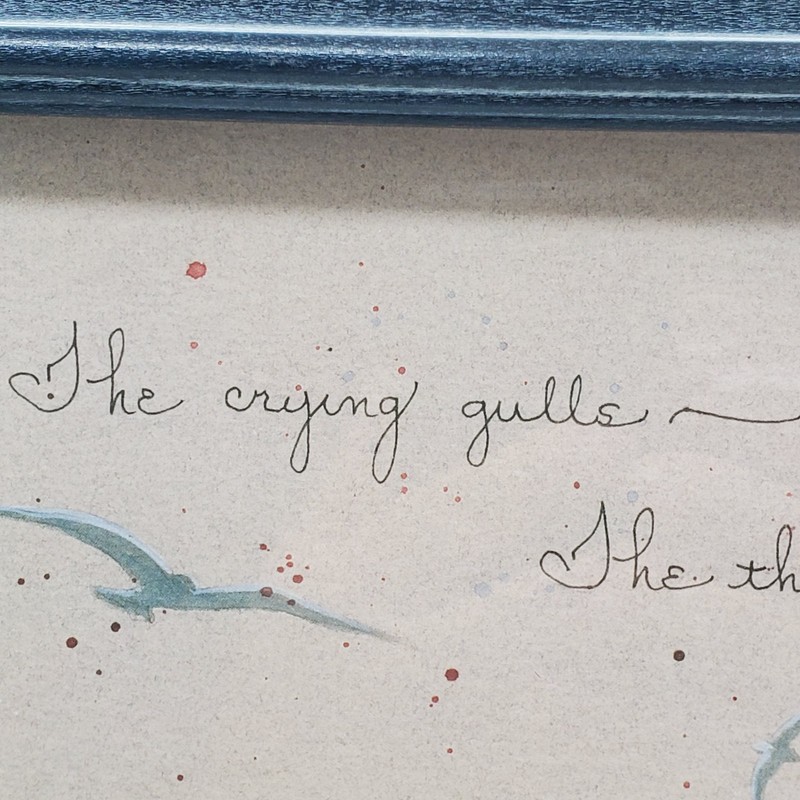 The crying gulls ~
The th